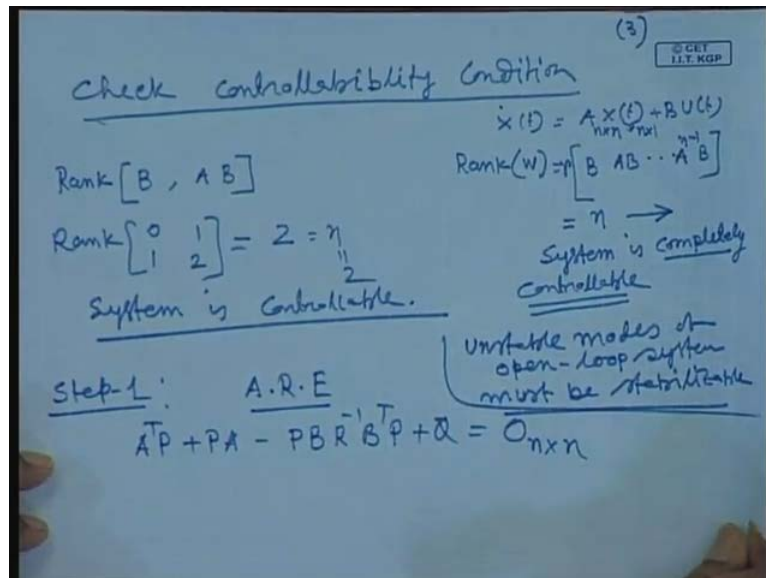 (3)
© CET
I.I.T. KGP
Check Controllabiblity Condition
ẋ(t) = A x(t) + B U(t)
n×n n×1
Rank [B , A B]
Rank(W) = r [B AB ·· Aⁿ⁻¹ B]
= n →
System is completely
Controllable
Rank [0 1
1 2] = 2 = n
"
2
System is Controllable.
Unstable modes of
open-loop system
must be stabilizable
Step-1: A.R.E
AᵀP + PA - PBR⁻¹BᵀP + Q = 0ₙₓₙ